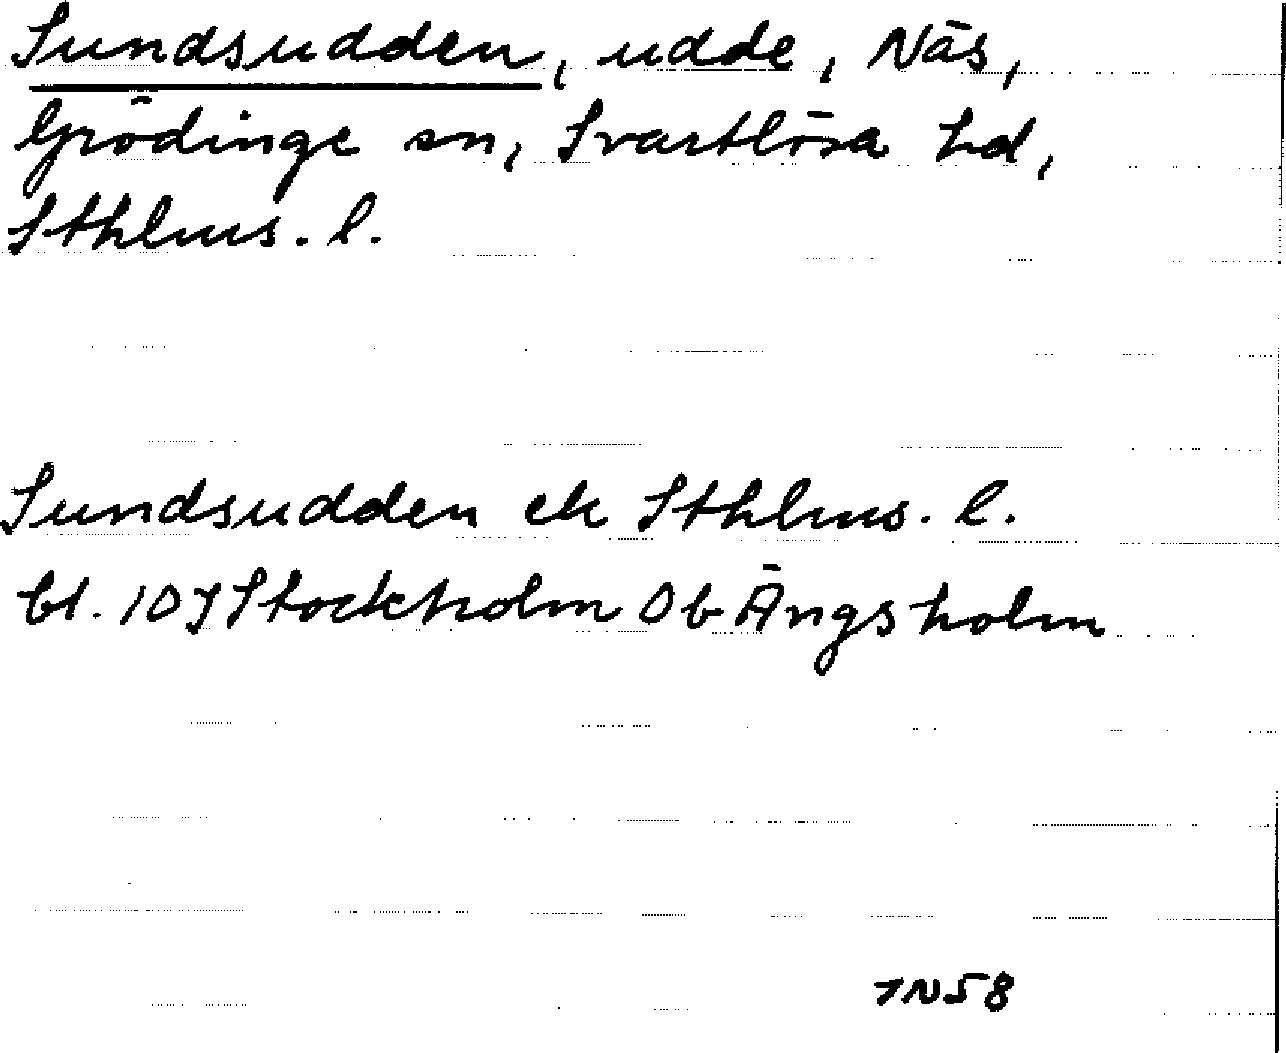 Sundsudden, udde, Näs,
Grödinge sn, Svartlösa hd,
Sthlms. l.
Sundsudden ek Sthlms. l.
bl. 10J Stockholm Ob Ängsholm